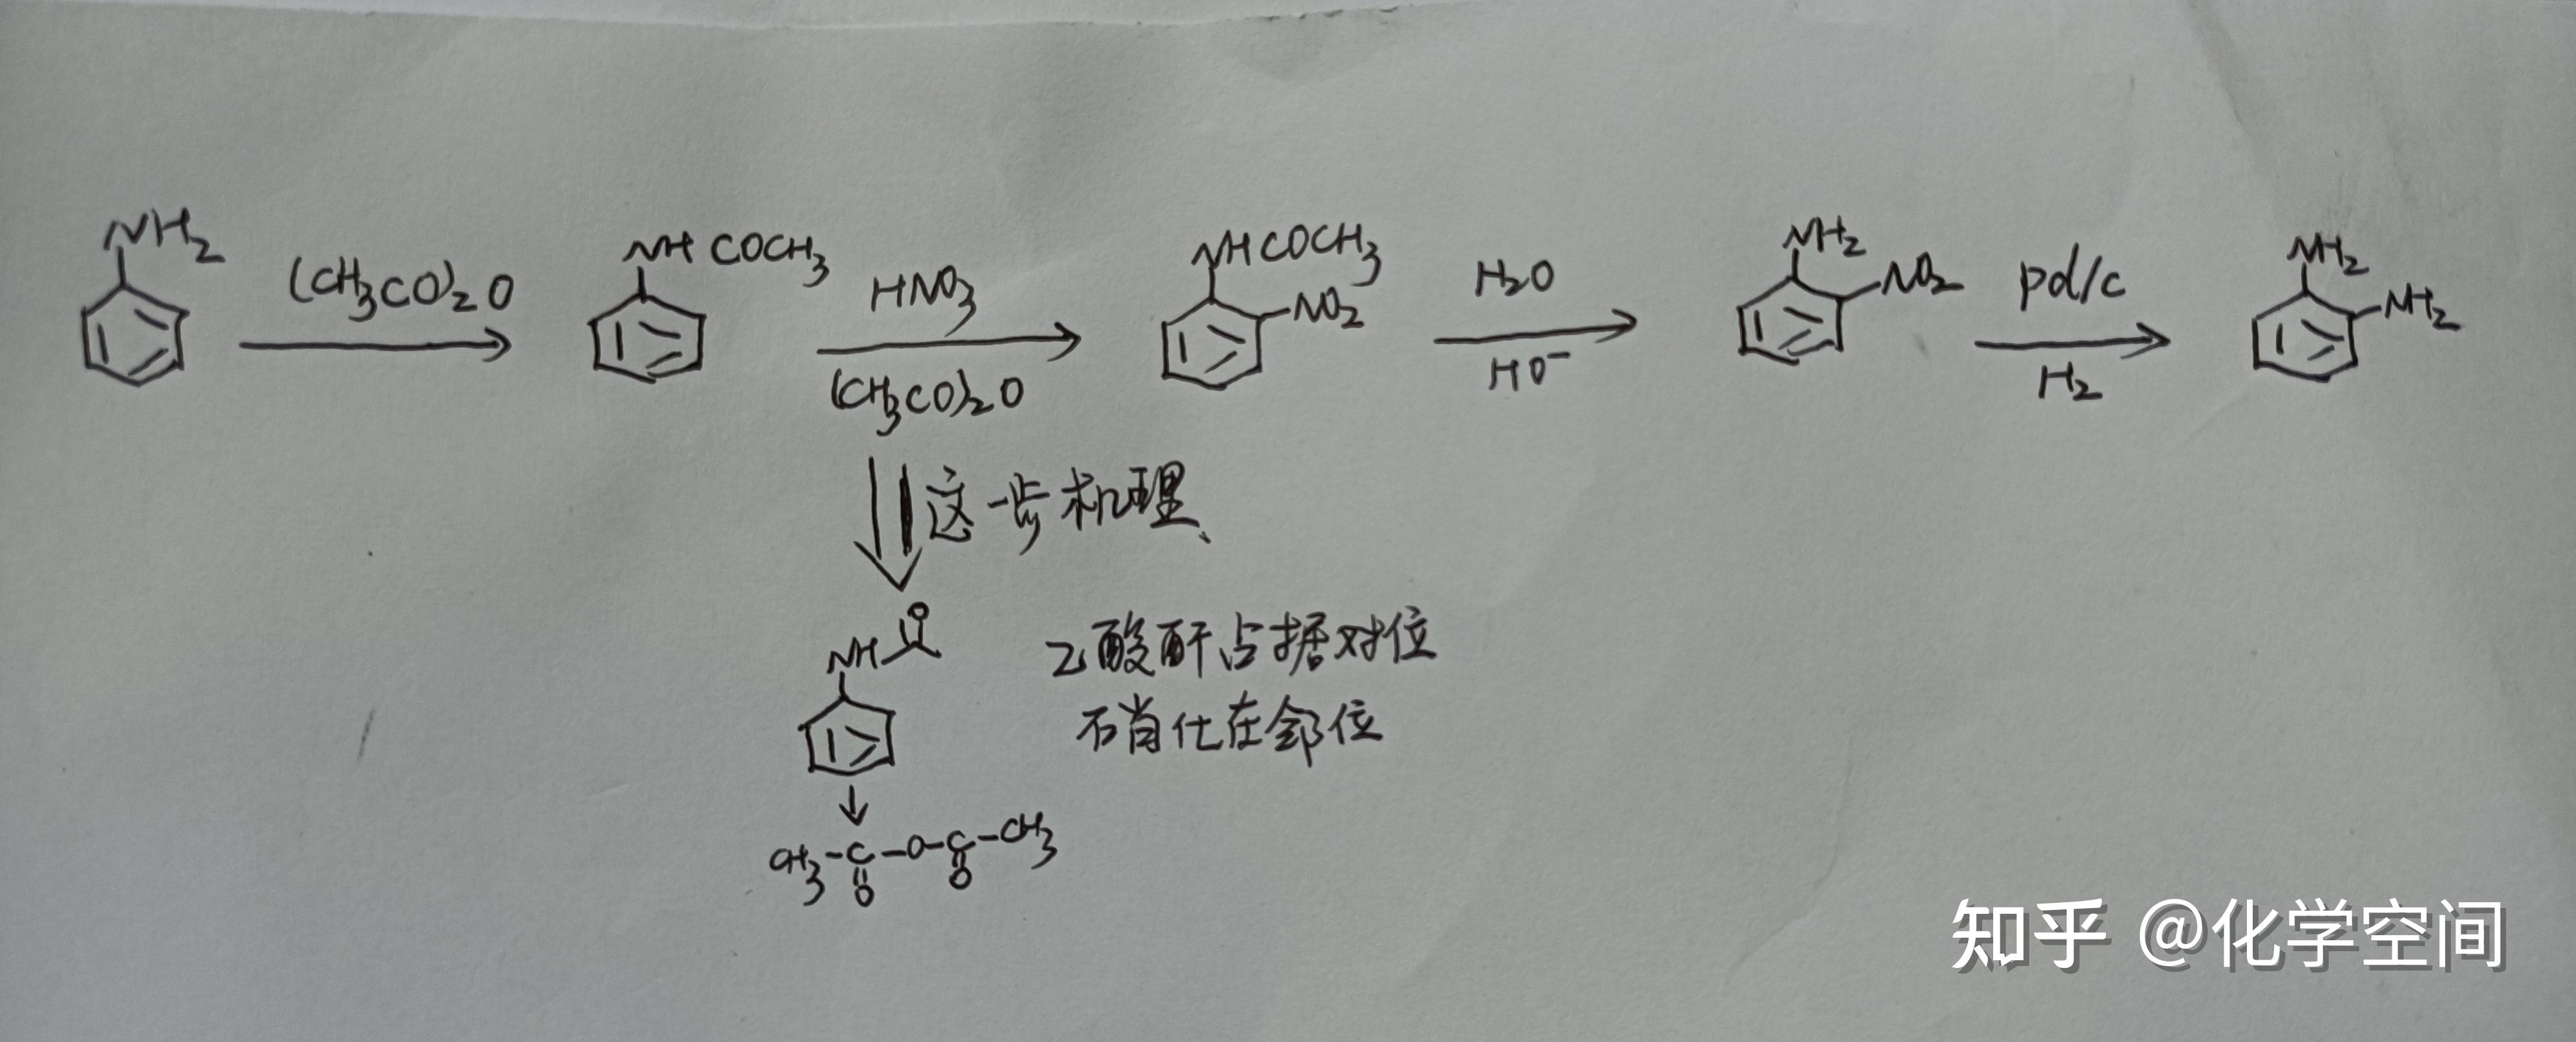 NH2 (CH3CO)2O NHCOCH3 HNO3 (CH3CO)2O NHCOCH3 NO2 H2O HO⁻ NH2 NO2 Pd/C H2 NH2 NH2
这一步机理
NH O 乙酸酐占据对位
硝化在邻位
CH3-C-O-C-CH3
O O
知乎 @化学空间